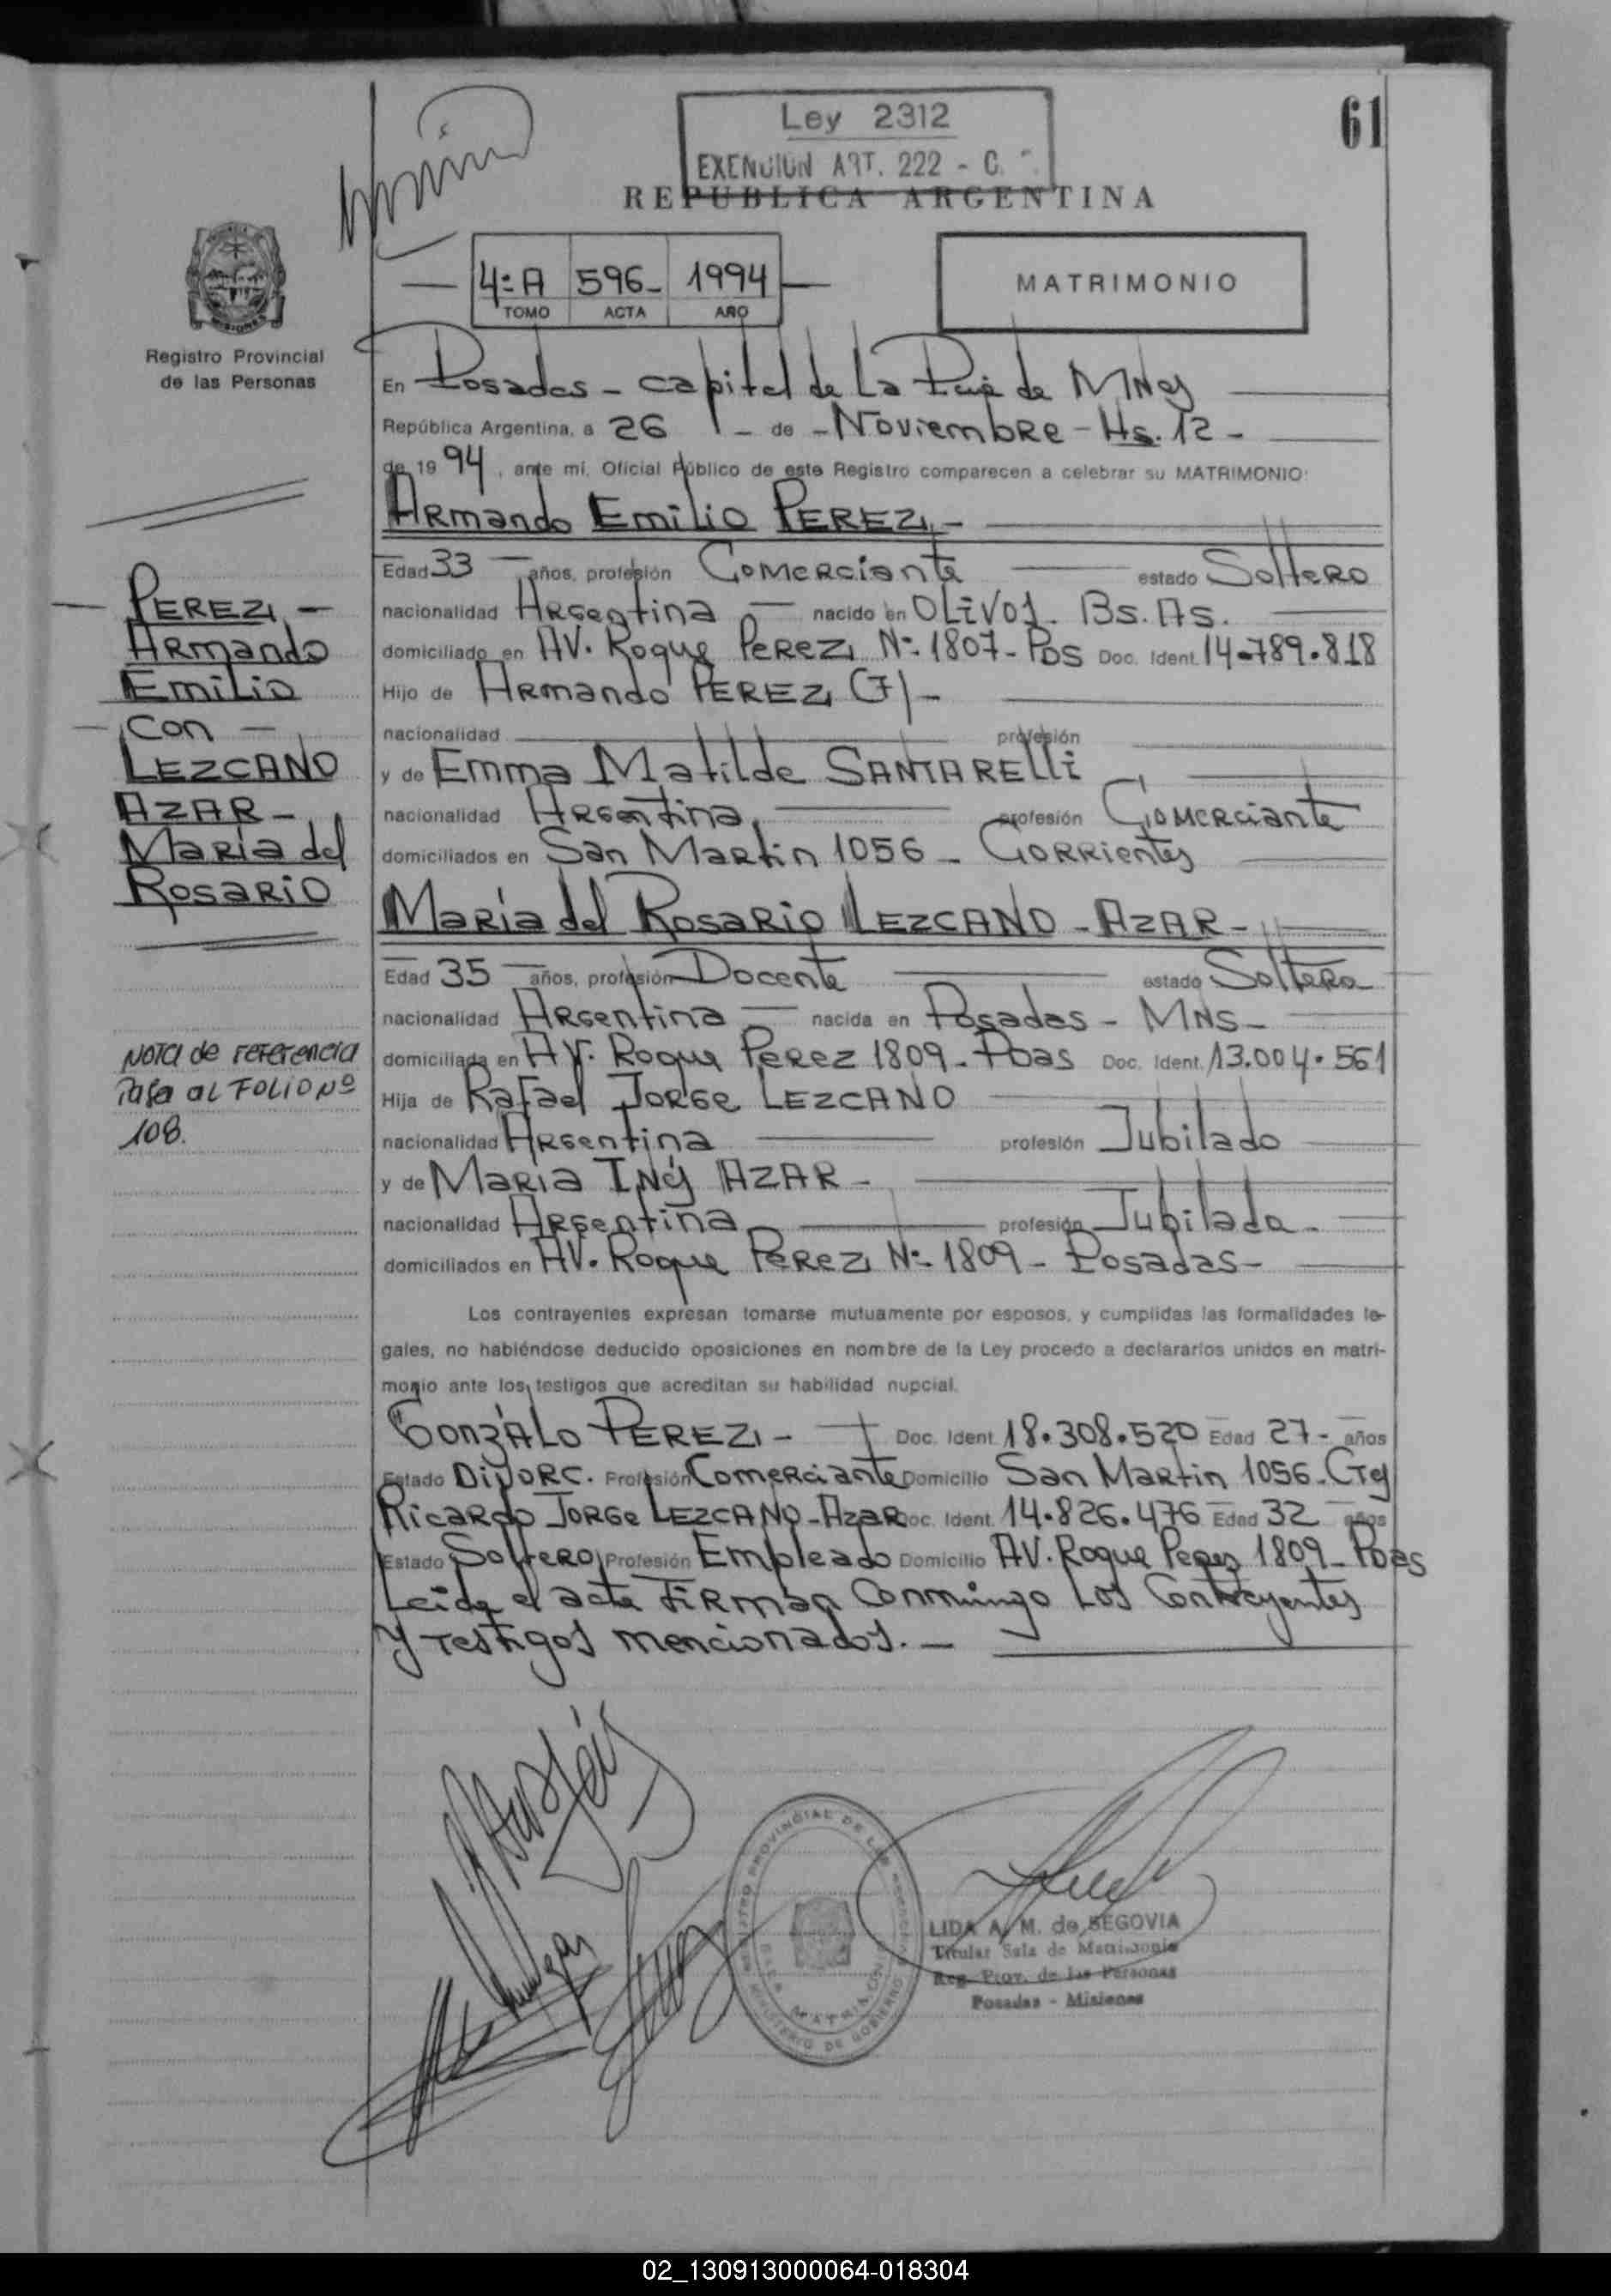 61
Ley 2312
EXENCION ART. 222 - C.
REPUBLICA ARGENTINA
4:A 596- 1994
TOMO ACTA AÑO
MATRIMONIO
Registro Provincial
de las Personas
En Posadas - capital de La Pcia de MNes
República Argentina, a 26 - de - Noviembre - Hs. 12 -
de 19 94, ante mí, Oficial Público de este Registro comparecen a celebrar su MATRIMONIO:
Armando Emilio PEREZ -
Edad 33 años, profesión Comerciante estado Soltero
nacionalidad Argentina nacido en Olivos. Bs. As.
domiciliado en AV. Roque Perez Nº 1807 - Pos Doc. Ident. 14.789.818
Hijo de Armando PEREZ (F) -
nacionalidad profesión
y de Emma Matilde SANTARELLi
nacionalidad Argentina profesión Comerciante
domiciliados en San Martin 1056 - Corrientes
María del Rosario LEZCANO - AZAR -
Edad 35 años, profesión Docente estado Soltera
nacionalidad Argentina nacida en Posadas - MNS -
domiciliada en AV. Roque Perez 1809 - Pdas Doc. Ident. 13.004.561
Hija de Rafael Jorge LEZCANO
nacionalidad Argentina profesión Jubilado
y de Maria Inés AZAR -
nacionalidad Argentina profesión Jubilada -
domiciliados en AV. Roque Perez Nº 1809 - Posadas -
Los contrayentes expresan tomarse mutuamente por esposos, y cumplidas las formalidades le-
gales, no habiéndose deducido oposiciones en nombre de la Ley procedo a declararlos unidos en matri-
monio ante los testigos que acreditan su habilidad nupcial.
Gonzalo PEREZ - Doc. Ident. 18.308.520 Edad 27 - años
Estado Divorc. Profesión Comerciante Domicilio San Martin 1056 - Ctes
Ricardo Jorge LEZCANO - Azar Doc. Ident. 14.826.476 Edad 32 años
Estado Soltero Profesión Empleado Domicilio AV. Roque Perez 1809 - Pdas
Leida el acta Firman Conmingo Los Contrayentes
y testigos mencionados. -
PEREZ -
Armando
Emilio
con -
LEZCANO
AZAR -
María del
Rosario
Nota de referencia
Pasa al FOLIO Nº
108.
REGISTRO PROVINCIAL DE LAS PERSONAS
MINISTERIO DE GOBIERNO
LIDA A. M. de SEGOVIA
Titular Sala de Matrimonio
Reg. Prov. de las Personas
Posadas - Misiones
02_130913000064-018304